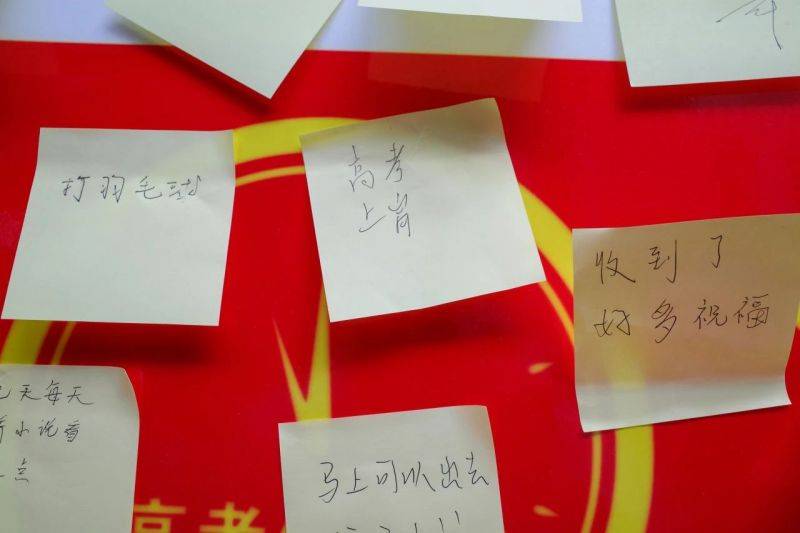 打羽毛球
高考
上岸
收到了
好多祝福
天每天
小说看
点
马上可以出去
高考